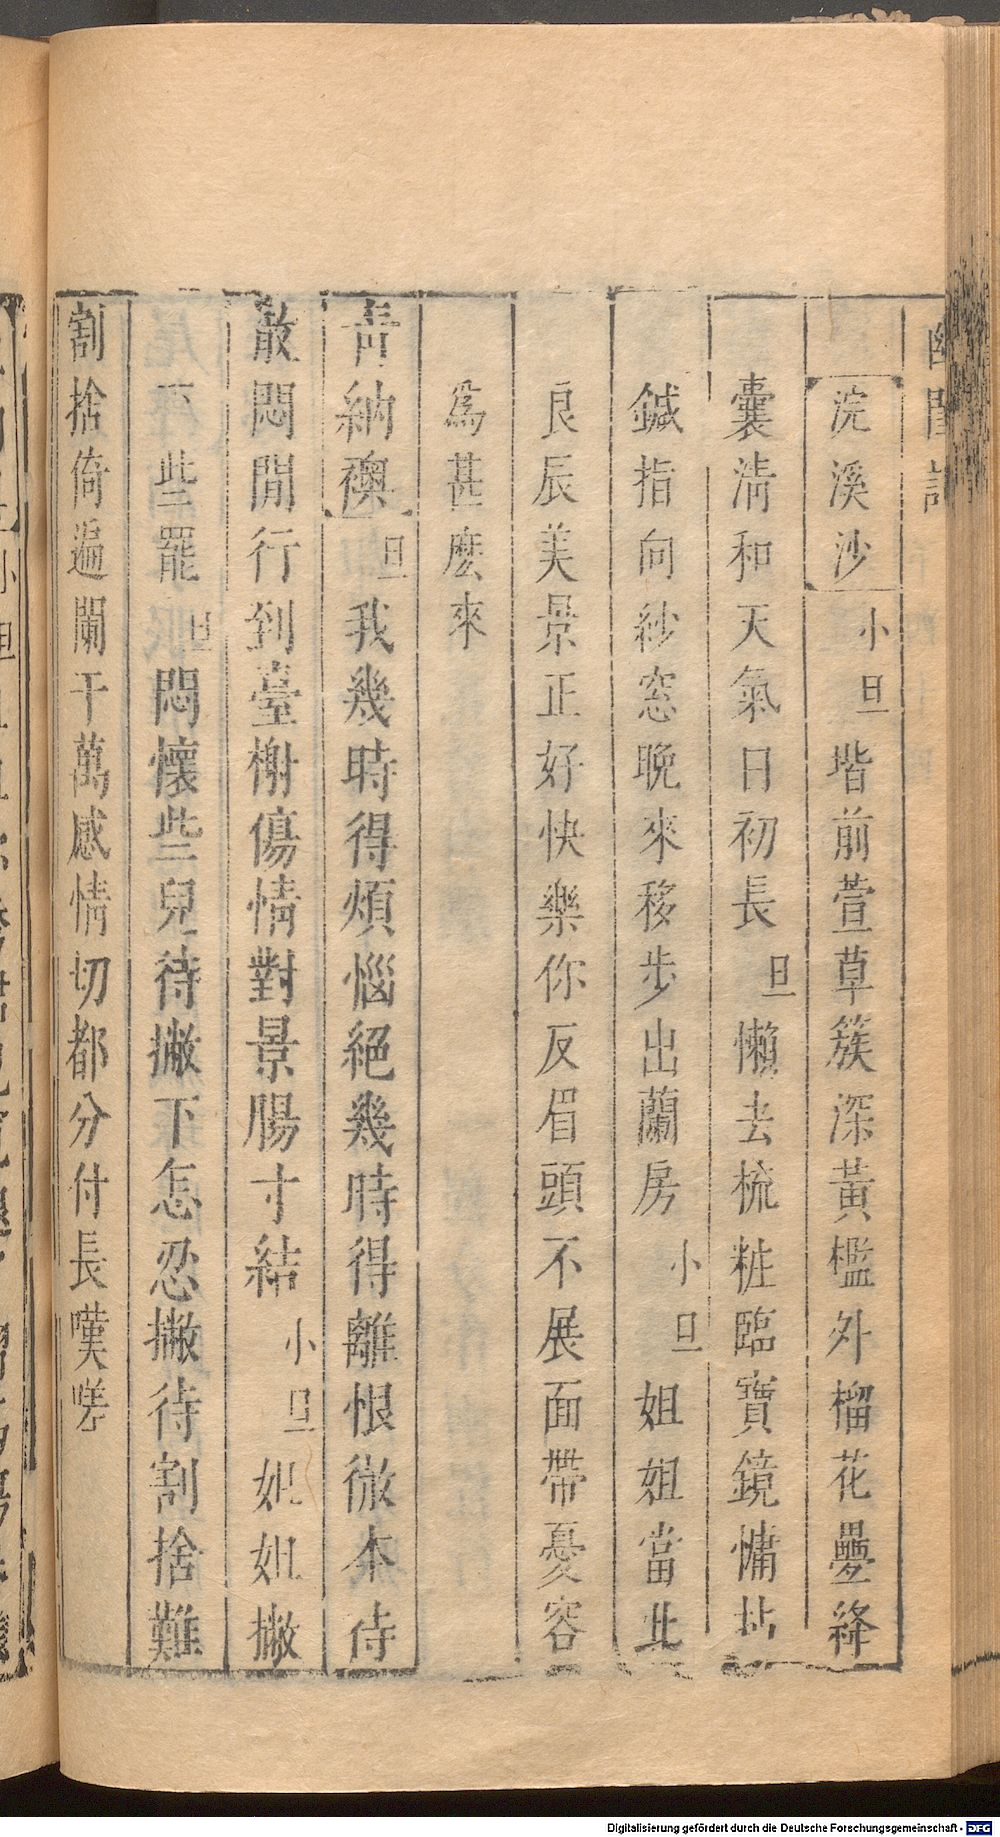 幽閨記
浣溪沙 小旦 堦前萱草簇深黃檻外榴花疊絳
囊淸和天氣日初長 旦 懶去梳粧臨寶鏡慵拈
鍼指向紗窓晩來移步出蘭房 小旦 姐姐當此
良辰美景正好快樂你反眉頭不展面帶憂容
爲甚麽來
靑衲襖 旦 我幾時得煩惱絕幾時得離恨徹本待
散悶閒行到臺榭傷情對景腸寸結 小旦 姐姐撇
下些罷 旦 悶懷些兒待撇下怎忍撇待割捨難
割捨倚遍闌干萬感情切都分付長嘆嗟
Digitalisierung gefördert durch die Deutsche Forschungsgemeinschaft - DFG